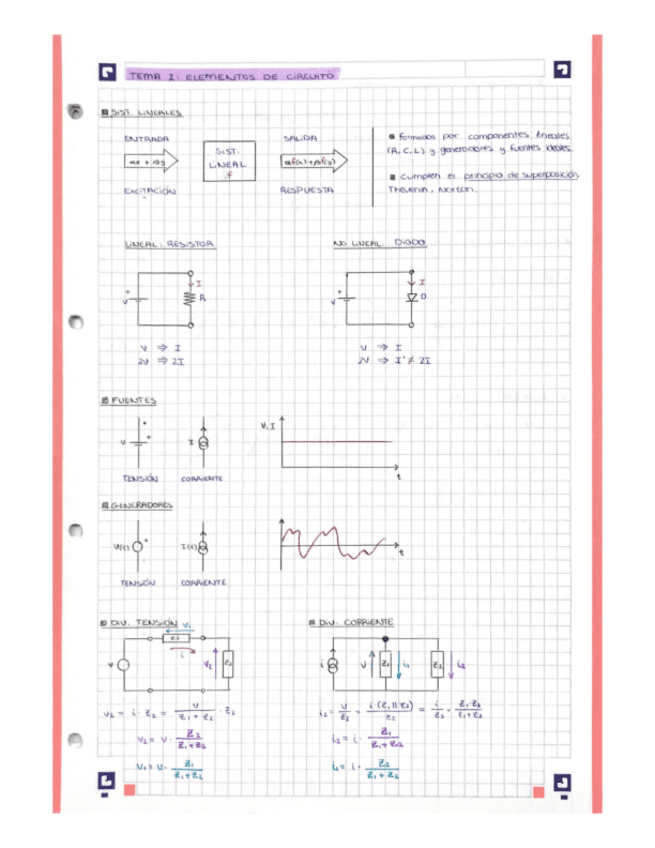 TEMA 2: ELEMENTOS DE CIRCUITO
SIST. LINEALES
ENTRADA
αx + βy
EXCITACIÓN
SIST.
LINEAL
f
SALIDA
αf(x)+βf(y)
RESPUESTA
Formados por componentes lineales
(R, C, L) y generadores y fuentes ideales.
Cumplen el principio de superposición,
Thevenin, Norton.
LINEAL: RESISTOR
NO LINEAL: DIODO
+
V
I
R
+
V
I
D
V ⇒ I
2V ⇒ 2I
V ⇒ I
2V ⇒ I' ≠ 2I
FUENTES
V
+
I
V, I
t
TENSIÓN
CORRIENTE
GENERADORES
V(t)
+
I(t)
t
TENSIÓN
CORRIENTE
DIV. TENSIÓN
V₁
Z₁
i
V
V₂
Z₂
V₂ = i · Z₂ = V / (Z₁ + Z₂) · Z₂
V₂ = V · Z₂ / (Z₁ + Z₂)
V₁ = V · Z₁ / (Z₁ + Z₂)
DIV. CORRIENTE
i
V
Z₁
i₁
Z₂
i₂
i₂ = V / Z₂ = i · (Z₁ || Z₂) / Z₂ = i / Z₂ · Z₁ · Z₂ / (Z₁ + Z₂)
i₂ = i · Z₁ / (Z₁ + Z₂)
i₁ = i · Z₂ / (Z₁ + Z₂)